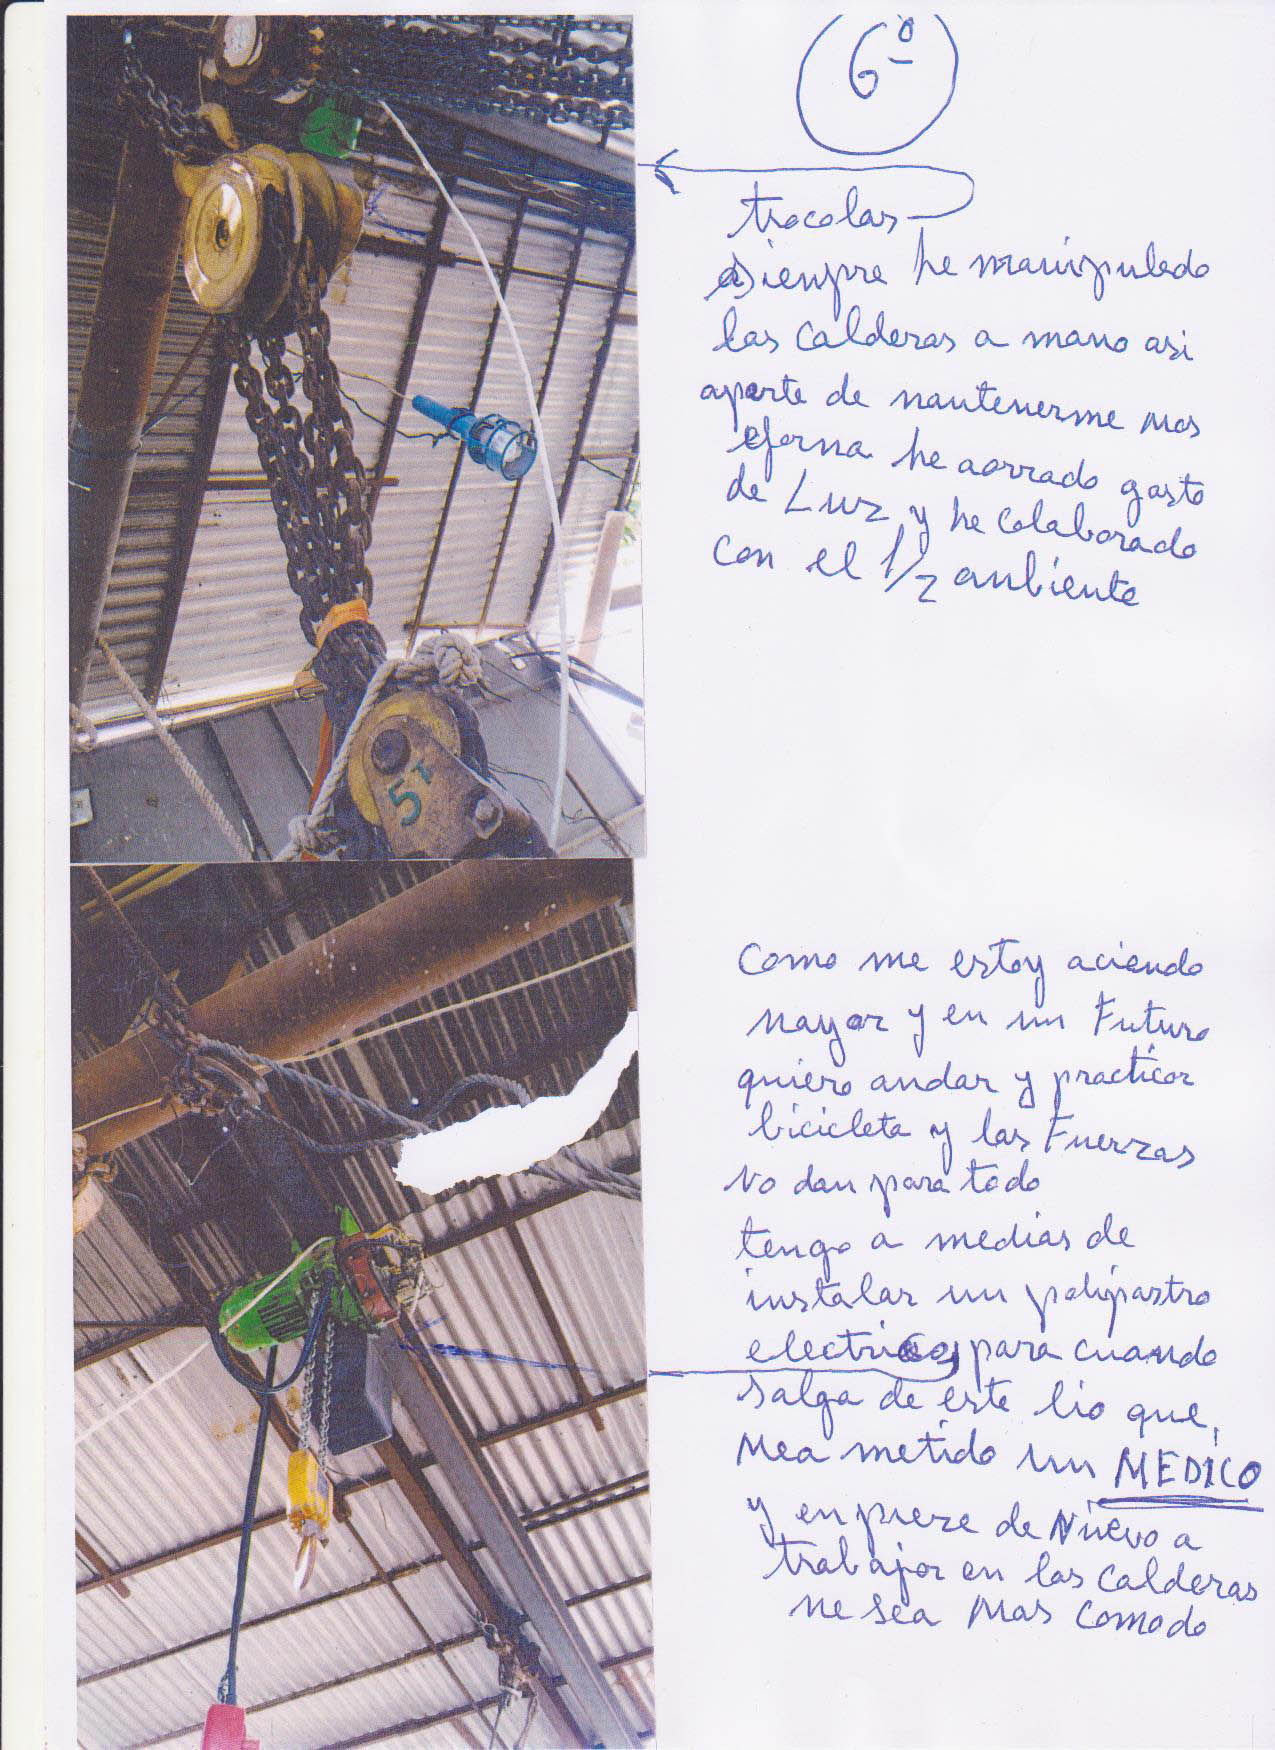 6º
trocolas
siempre he manipulado
las calderas a mano asi
aparte de mantenerme mas
eforma he aorrado gasto
de Luz y he colaborado
con el 1/2 anbiente
5t
Como me estoy aciendo
mayor y en un Futuro
quiero andar y practicar
bicicleta y las Fuerzas
No dan para todo
tengo a medias de
instalar un polipastro
electrico, para cuando
salga de este lio que,
Mea metido un MEDICO
y enpieze de Nuevo a
trabajar en las calderas
me sea Mas comodo